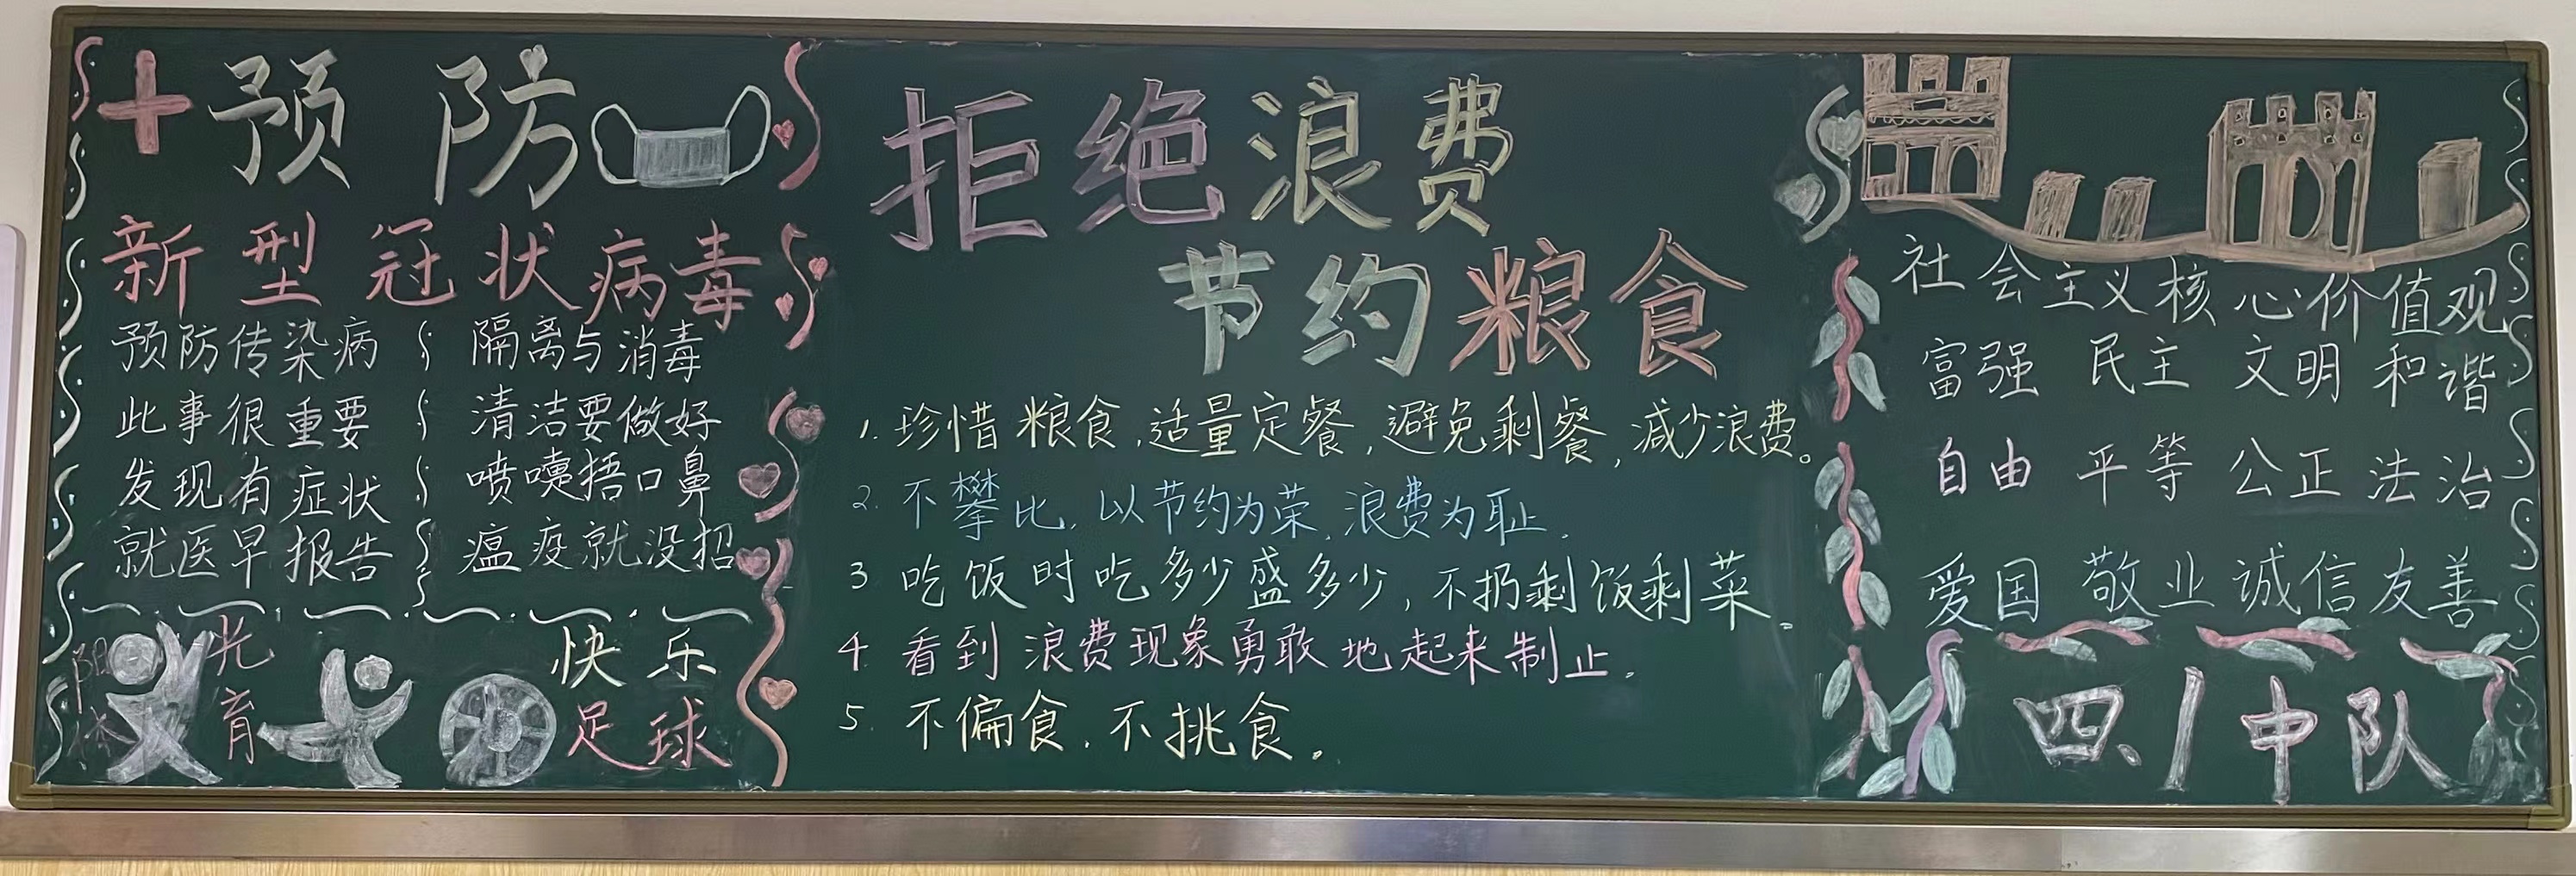 预防
新型冠状病毒
预防传染病
此事很重要
发现有症状
就医早报告
隔离与消毒
清洁要做好
喷嚏捂口鼻
瘟疫就没招
阳光
体育
快乐
足球
拒绝浪费
节约粮食
1. 珍惜粮食,适量定餐,避免剩餐,减少浪费。
2. 不攀比,以节约为荣,浪费为耻.
3 吃饭时吃多少盛多少,不扔剩饭剩菜。
4. 看到浪费现象勇敢地起来制止.
5. 不偏食,不挑食。
社会主义核心价值观
富强 民主 文明 和谐
自由 平等 公正 法治
爱国 敬业 诚信 友善
四、1中队